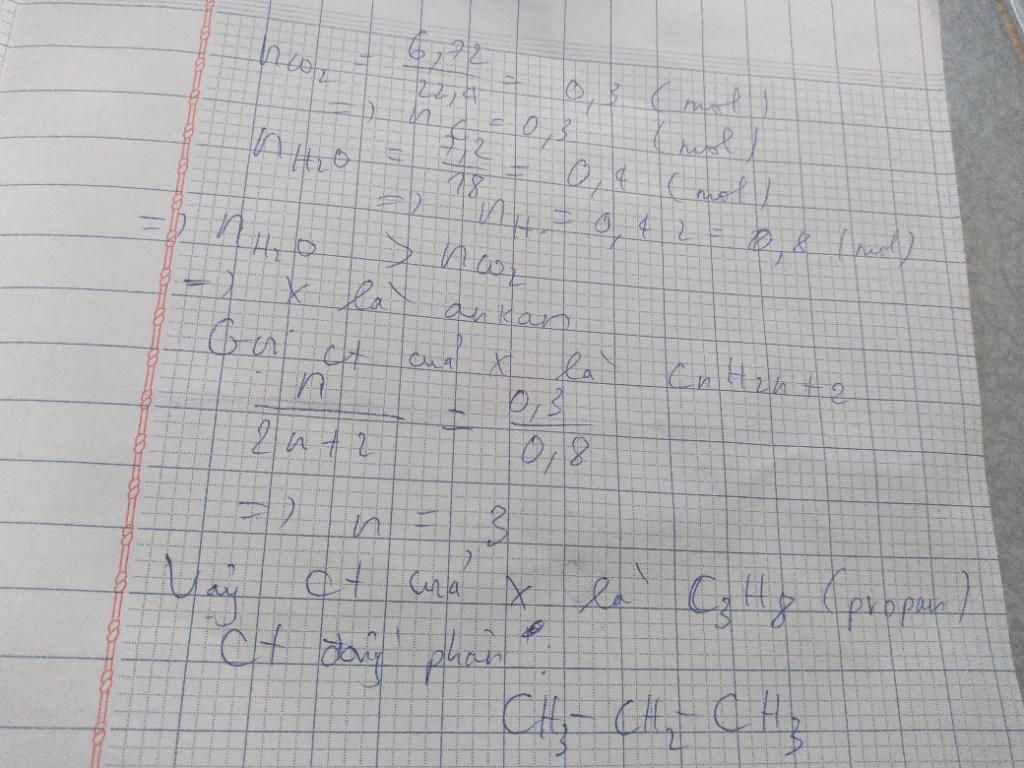 nCO2 = 6,72/22,4 = 0,3 (mol)
=> nC = 0,3 (mol)
nH2O = 7,2/18 = 0,4 (mol)
=> nH = 0,4.2 = 0,8 (mol)
=> nH2O > nCO2
=> X là ankan
Gọi ct của X là CnH2n+2
n/2n+2 = 0,3/0,8
=> n = 3
Vậy Ct của X là C3H8 (propan)
Ct đồng phân:
CH3 - CH2 - CH3